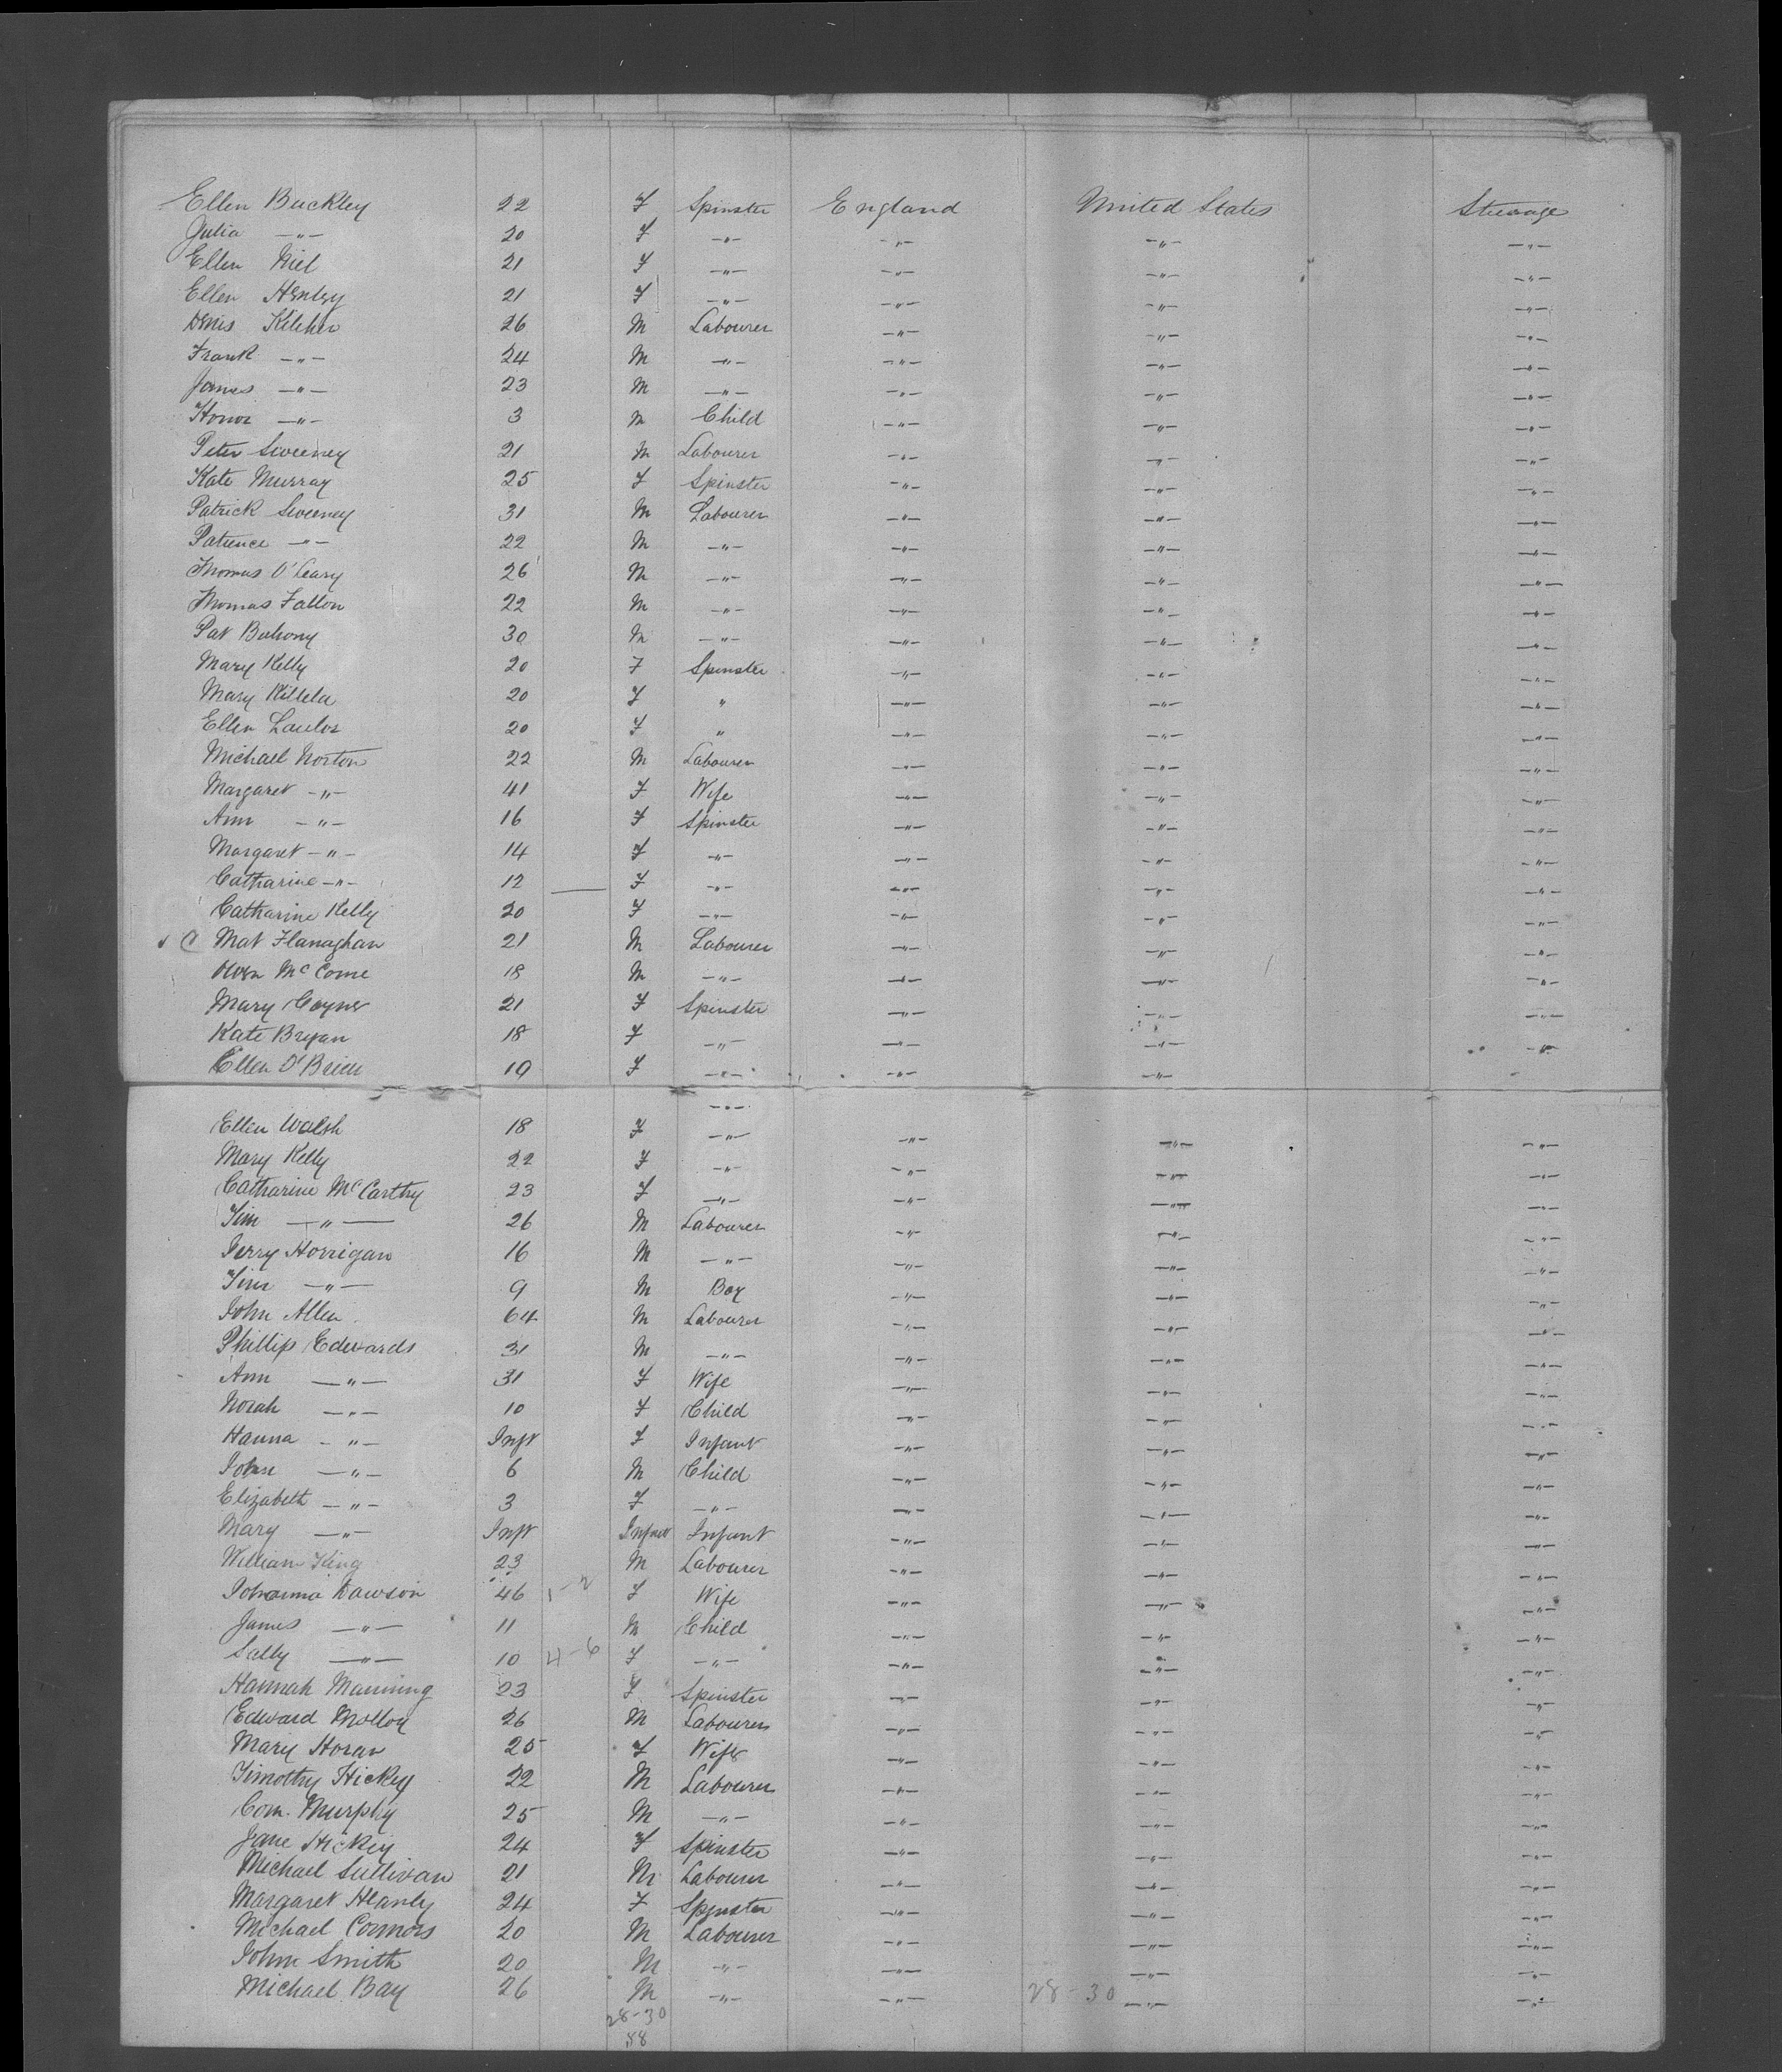 Ellen Buckley 22 F Spinster England United States Steerage
Julia —"— 20 F —"— —"— —"— —"—
Ellen Niel 21 F —"— —"— —"— —"—
Ellen Henley 21 F —"— —"— —"— —"—
Denis Kelcher 26 M Labourer —"— —"— —"—
Frank —"— 24 M —"— —"— —"— —"—
James —"— 23 M —"— —"— —"— —"—
Honor —"— 3 M Child —"— —"— —"—
Peter Sweeney 21 M Labourer —"— —"— —"—
Kate Murray 25 F Spinster —"— —"— —"—
Patrick Sweeney 31 M Labourer —"— —"— —"—
Patience —"— 22 M —"— —"— —"— —"—
Thomas O'Leary 26 M —"— —"— —"— —"—
Thomas Fallon 22 M —"— —"— —"— —"—
Pat 30 M —"— —"— —"— —"—
Mary Kelly 20 F Spinster —"— —"— —"—
Mary Killela 20 F " —"— —"— —"—
Ellen 20 F " —"— —"— —"—
Michael Norton 22 M Labourer —"— —"— —"—
Margaret —"— 41 F Wife —"— —"— —"—
Ann —"— 16 F Spinster —"— —"— —"—
Margaret —"— 14 F —"— —"— —"— —"—
Catharine —"— 12 F —"— —"— —"— —"—
Catharine Kelly 20 F —"— —"— —"— —"—
Mat Flanaghan 21 M Labourer —"— —"— —"—
Owen McCome 18 M —"— —"— —"— —"—
Mary Coyne 21 F Spinster —"— —"— —"—
Kate Bryan 18 F —"— —"— —"— —"—
Ellen O'Brien 19 F —"— —"— —"—
—"—
Ellen Walsh 18 F —"— —"— —"— —"—
Mary Kelly 22 F —"— —"— —"— —"—
Catharine McCarthy 23 F —"— —"— —"— —"—
Tim —"— 26 M Labourer —"— —"— —"—
Jerry Horrigan 16 M —"— —"— —"— —"—
Tim —"— 9 M Boy —"— —"— —"—
John Allen 64 M Labourer —"— —"— —"—
Phillip Edwards 31 M —"— —"— —"— —"—
Ann —"— 31 F Wife —"— —"— —"—
Norah —"— 10 F Child —"— —"— —"—
Hanna —"— Inft F Infant —"— —"— —"—
John —"— 6 M Child —"— —"— —"—
Elizabeth —"— 3 F —"— —"— —"— —"—
Mary —"— Inft Infant Infant —"— —"— —"—
William King 23 M Labourer —"— —"— —"—
Johanna Dawson 46 F Wife —"— —"— —"—
James —"— 11 M Child —"— —"— —"—
Sally —"— 10 4-6 F —"— —"— —"— —"—
Hannah Manning 23 F Spinster —"— —"— —"—
Edward Molloy 26 M Labourer —"— —"— —"—
Mary Horan 25 F Wife —"— —"— —"—
Timothy Hickey 22 M Labourer —"— —"— —"—
Corn. Murphy 25 M —"— —"— —"— —"—
Jane Hickey 24 F Spinster —"— —"— —"—
Michael Sullivan 21 M Labourer —"— —"— —"—
Margaret Heanly 24 F Spinster —"— —"— —"—
Michael Connors 20 M Labourer —"— —"— —"—
John Smith 20 M —"— —"— —"— —"—
Michael Bay 26 M —"— —"— 28-30 —"— —"—
28-30
58